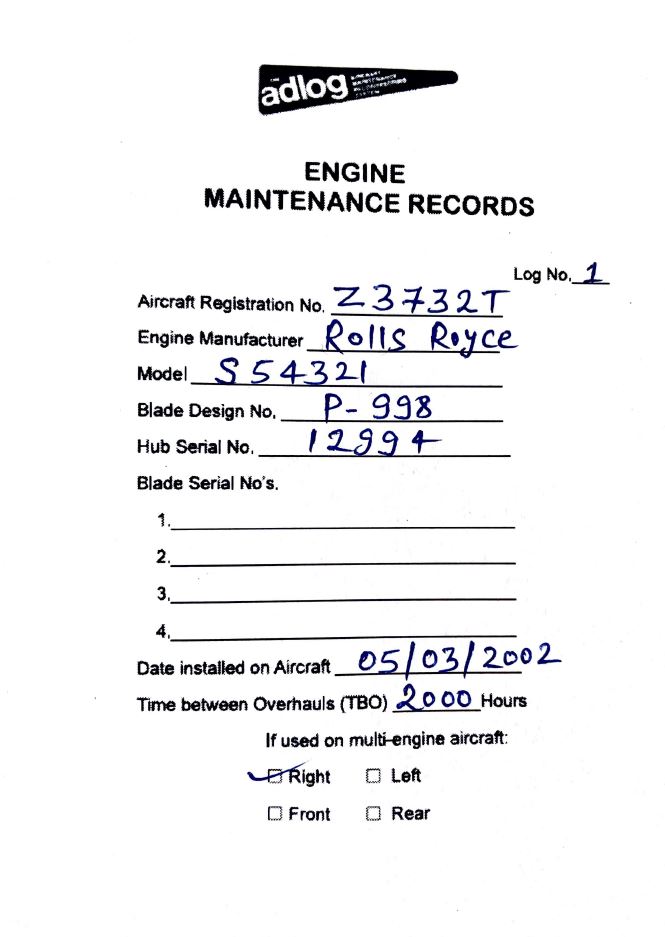 THE
adlog
ENGINE
MAINTENANCE RECORDS
Log No. 1
Aircraft Registration No. Z3732T
Engine Manufacturer Rolls Royce
Model S54321
Blade Design No. P-998
Hub Serial No. 12994
Blade Serial No's.
1.
2.
3.
4.
Date installed on Aircraft 05/03/2002
Time between Overhauls (TBO) 2000 Hours
If used on multi-engine aircraft:
Right Left
Front Rear